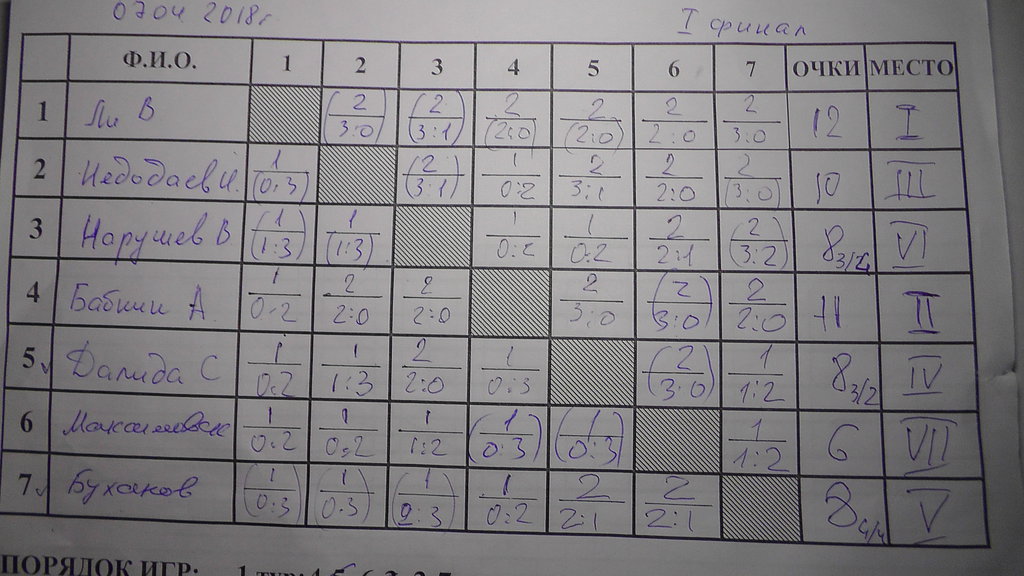 07 04 2018г I финал
Ф.И.О. 1 2 3 4 5 6 7 ОЧКИ МЕСТО
1 Ли В (2/3:0) (2/3:1) 2/(2:0) 2/(2:0) 2/2:0 2/3:0 12 I
2 Недодаев И. 1/(0:3) (2/3:1) 1/0:2 2/3:1 2/2:0 2/(3:0) 10 III
3 Нарушев В (1/1:3) 1/(1:3) 1/0:2 1/0:2 2/2:1 (2/3:2) 8 3/4 VI
4 Бабкин А 1/0:2 2/2:0 2/2:0 2/3:0 (2/3:0) 2/2:0 11 II
5 Далида С 1/0:2 1/1:3 2/2:0 1/0:3 (2/3:0) 1/1:2 8 3/2 IV
6 1/0:2 1/0:2 1/1:2 (1/0:3) (1/0:3) 1/1:2 6 VII
7 Буханов (1/0:3) (1/0:3) (1/0:3) 1/0:2 2/2:1 2/2:1 8 4/4 V
ПОРЯДОК ИГР: 1 тур: